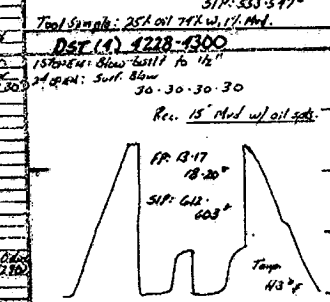 SIP: 533-547#
Tool Sample: 25% oil 74% w, 1% Mud.
DST (1) 4228-4300
1st OPEN: Blow built to 1½"
2nd OPEN: Surf. Blow
30-30-30-30
Rec. 15' Mud w/ oil spts.
FP: 13-17
18-20#
SIP: 612-
603#
Temp
113°F